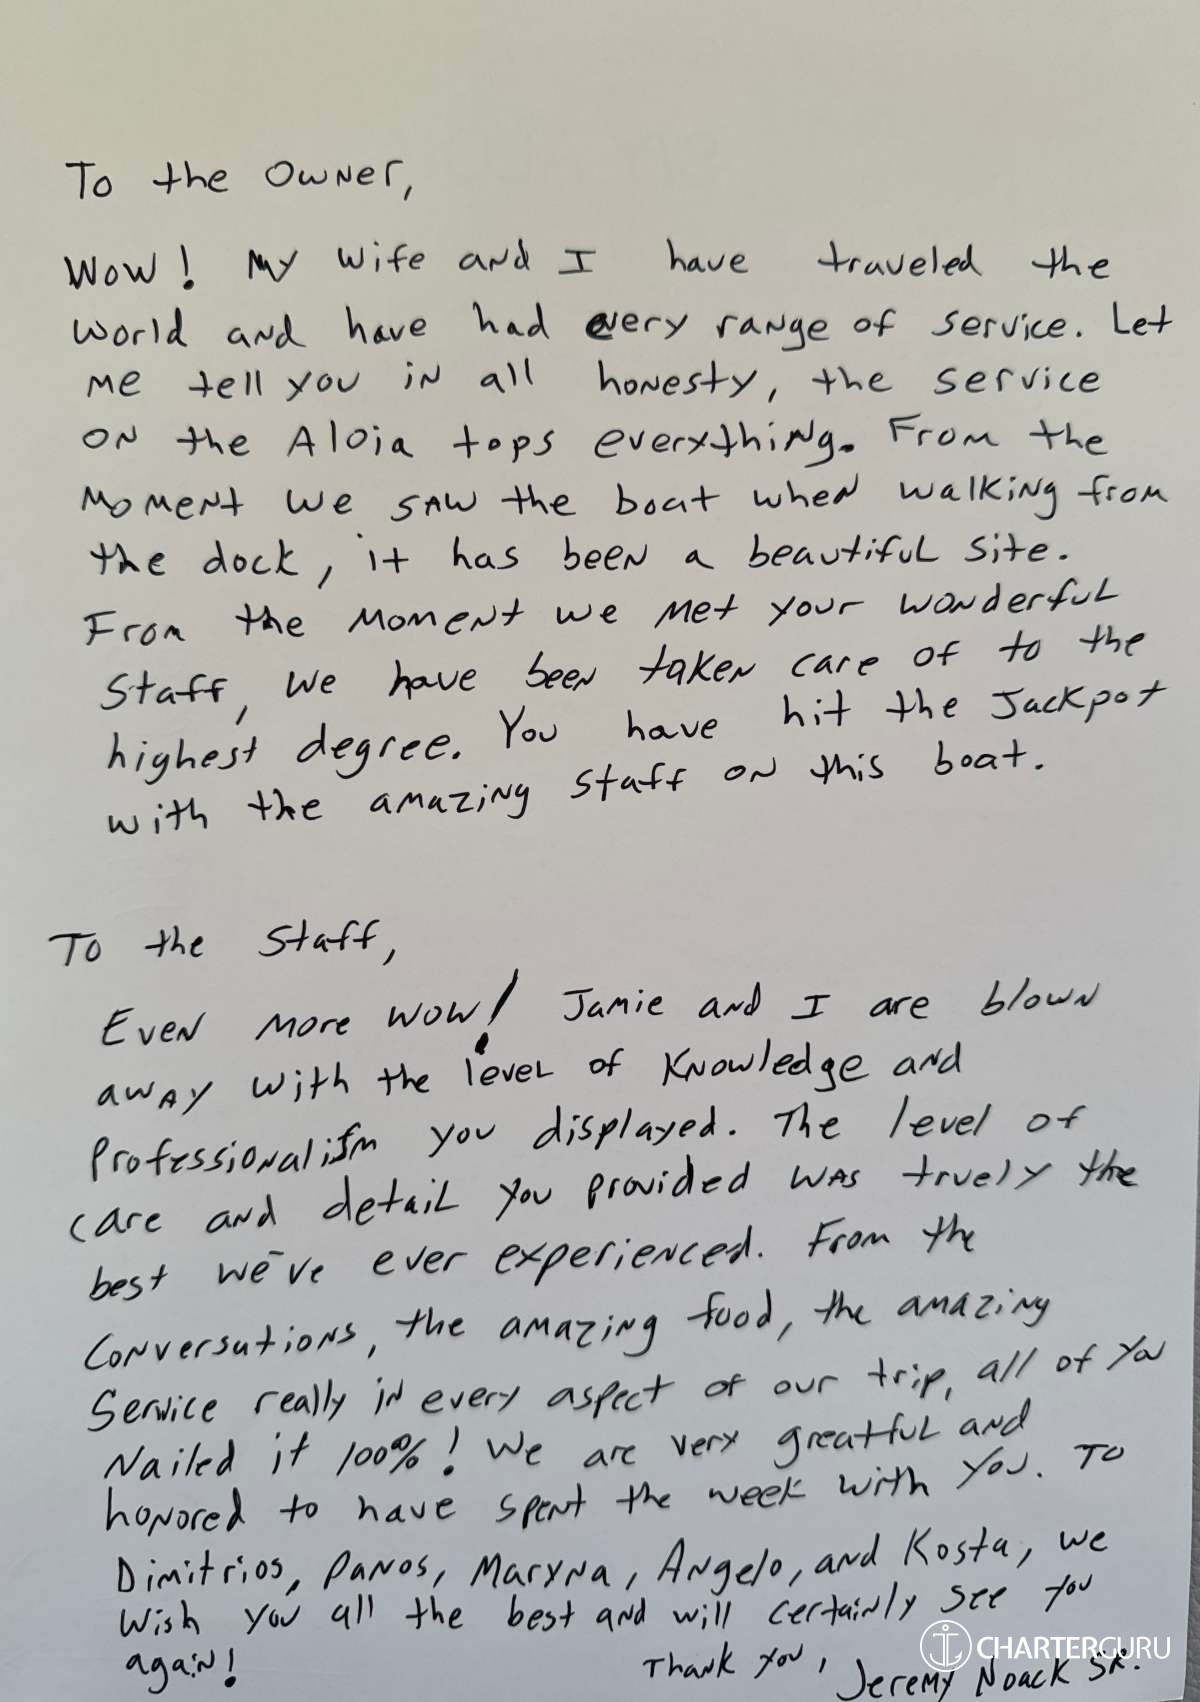 To the Owner,
Wow! My wife and I have traveled the
world and have had every range of service. Let
me tell you in all honesty, the service
on the Aloia tops everything. From the
moment we saw the boat when walking from
the dock, it has been a beautiful site.
From the moment we met your wonderful
staff, we have been taken care of to the
highest degree. You have hit the Jackpot
with the amazing staff on this boat.
To the Staff,
Even more wow! Jamie and I are blown
away with the level of knowledge and
Professionalism you displayed. The level of
care and detail you provided was truely the
best we've ever experienced. From the
conversations, the amazing food, the amazing
service really in every aspect of our trip, all of you
nailed it 100%! We are very greatful and
honored to have spent the week with you. To
Dimitrios, Panos, Maryna, Angelo, and Kosta, we
wish you all the best and will certainly see you
again!
Thank you, Jeremy Noack SR.
CHARTERGURU